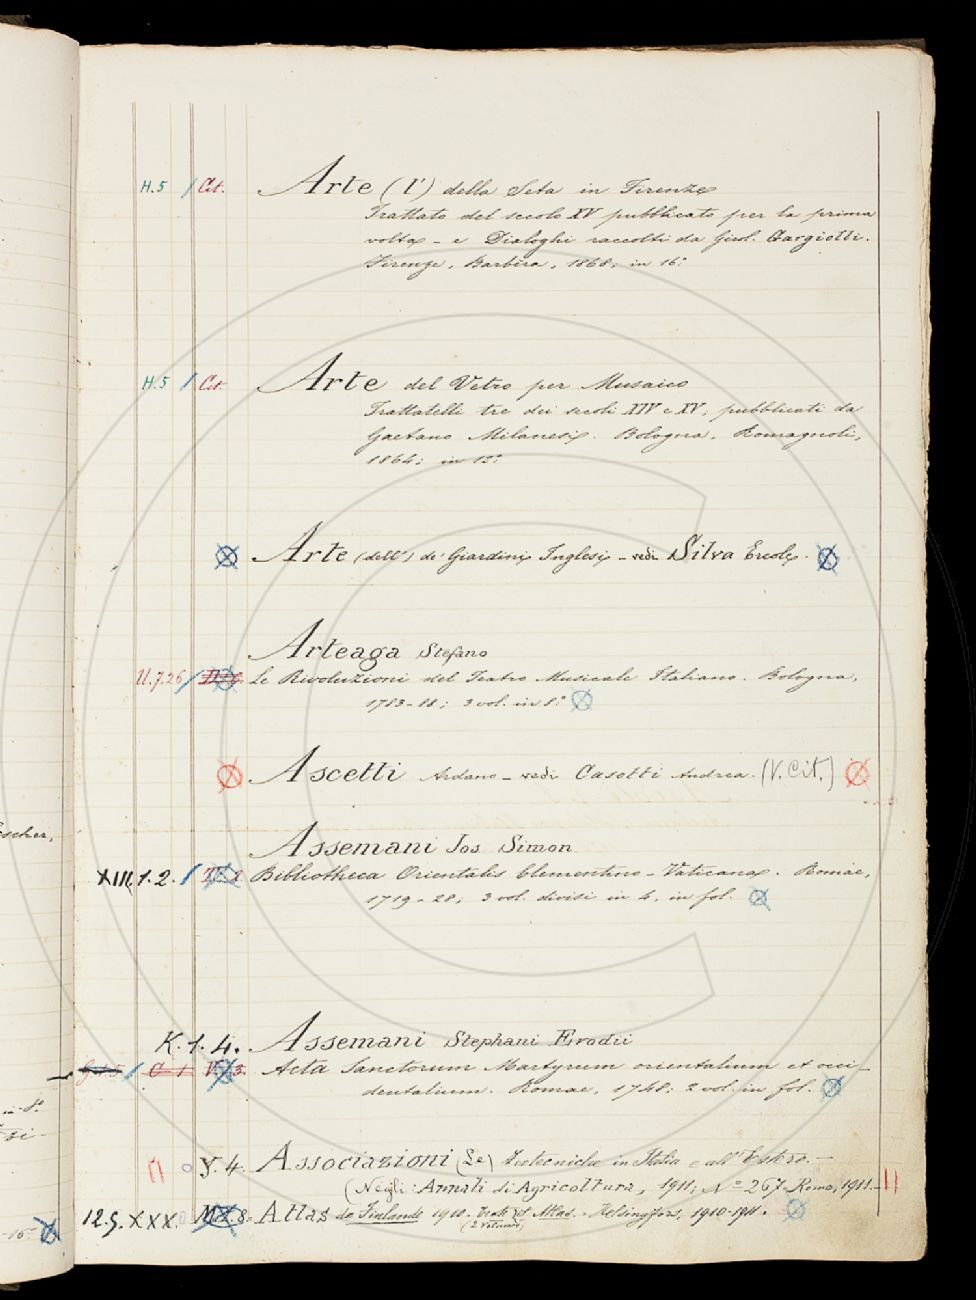 H.5 / Cit. Arte (l') della Seta in Firenze
Trattato del secolo XV pubblicato per la prima
volta - e Dialoghi raccolti da Girol. Gargiolli.
Firenze, Barbèra, 1868; in 16.°
H.5 / Cit. Arte del Vetro per Musaico
Trattatelli tre dei secoli XIV e XV, pubblicati da
Gaetano Milanesi. Bologna, Romagnoli,
1864; in 12.°
Arte (dell') de' Giardini Inglesi - vedi Silva Ercole.
Arteaga Stefano
U.7.26 / Le Rivoluzioni del Teatro Musicale Italiano. Bologna,
1783-88; 3 vol. in 8.°
Ascetti Ardano - vedi Casotti Andrea. (V. Cit.)
escher,
Assemani Jos Simon
XIII.1.2. / Bibliotheca Orientalis Clementino-Vaticana. Romae,
1719-28; 3 vol. divisi in 4, in fol.
K.1.4. Assemani Stephani Evodii
C 1 V.3. Acta Sanctorum Martyrum orientalium et occi-
dentalium. Romae, 1748; 2 vol. in fol.
in 8.°
Y.4. Associazioni (Le) Zootecniche in Italia e all'Estero.-
(Negli: Annali di Agricoltura, 1911; N.° 267. Roma, 1911.-
12.5. XXX. Atlas de Finlande 1910. Texte et Atlas. - Helsingfors, 1910-1911.
(2 volumi)
16.°